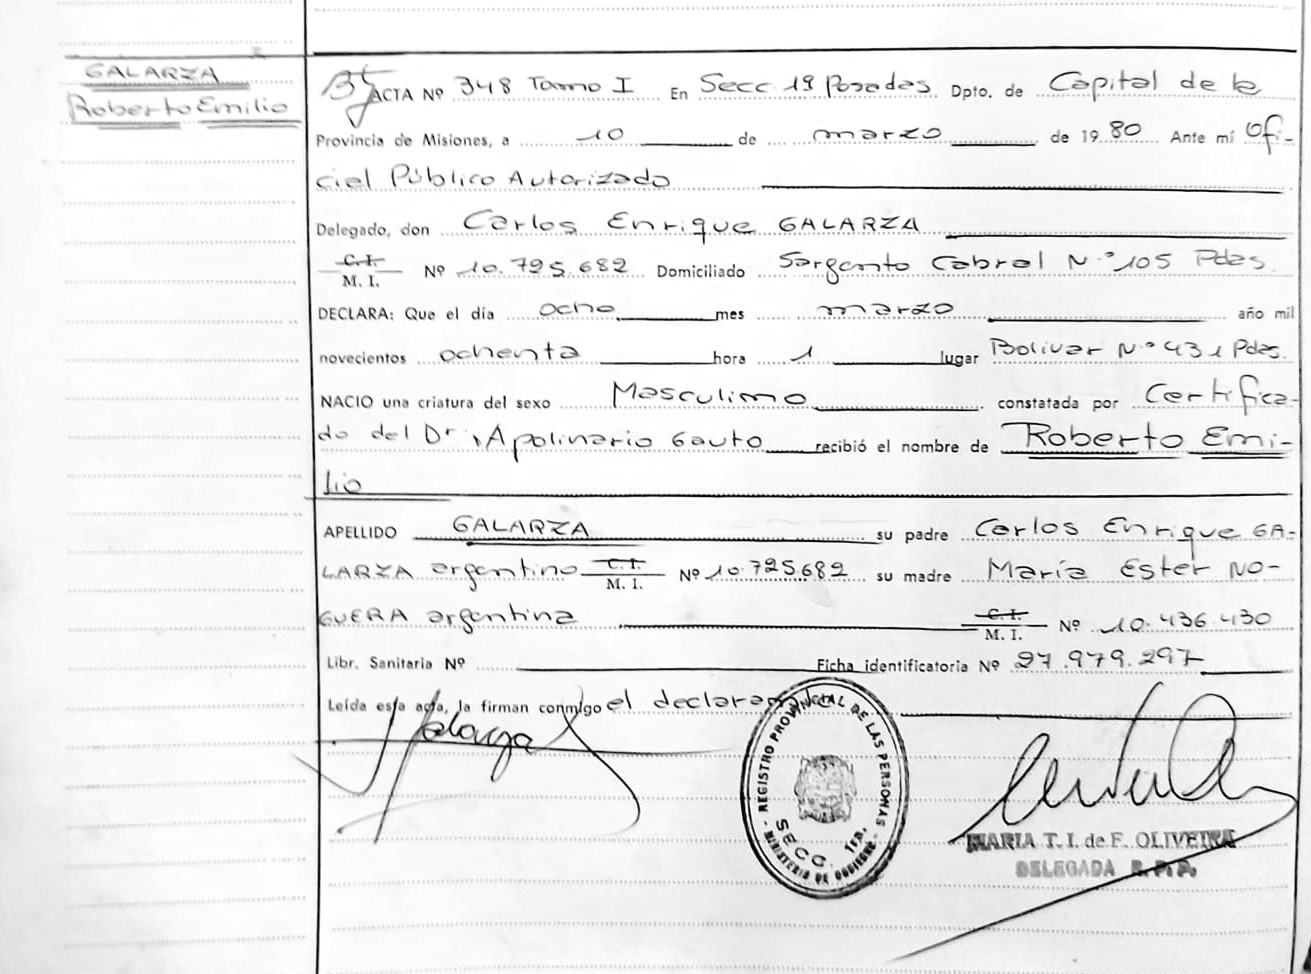 GALARZA
Roberto Emilio
ACTA Nº 348 Tomo I En Secc. 1ª Posadas Dpto. de Capital de la
Provincia de Misiones, a 10 de marzo de 1980 Ante mí Ofi-
cial Público Autorizado
Delegado, don Carlos Enrique GALARZA
C.I.
M. I. Nº 10.725.682 Domiciliado Sargento Cabral Nº 105 Pdas.
DECLARA: Que el día ocho mes marzo año mil
novecientos ochenta hora 1 lugar Bolivar Nº 431 Pdas.
NACIO una criatura del sexo Masculino constatada por Certifica-
do del Dr. Apolinario Gauto recibió el nombre de Roberto Emi-
lio
APELLIDO GALARZA su padre Carlos Enrique GA-
LARZA argentino C.I. M. I. Nº 10.725.682 su madre María Ester NO-
GUERA argentina C.I. M. I. Nº 10.436.430
Libr. Sanitaria Nº Ficha identificatoria Nº 27.979.297
Leída esta acta, la firman conmigo el declarante
REGISTRO PROVINCIAL DE LAS PERSONAS
SECC. 1ra.
MINISTERIO DE GOBIERNO
MARIA T. I. de F. OLIVEIRA
DELEGADA R. P. P.